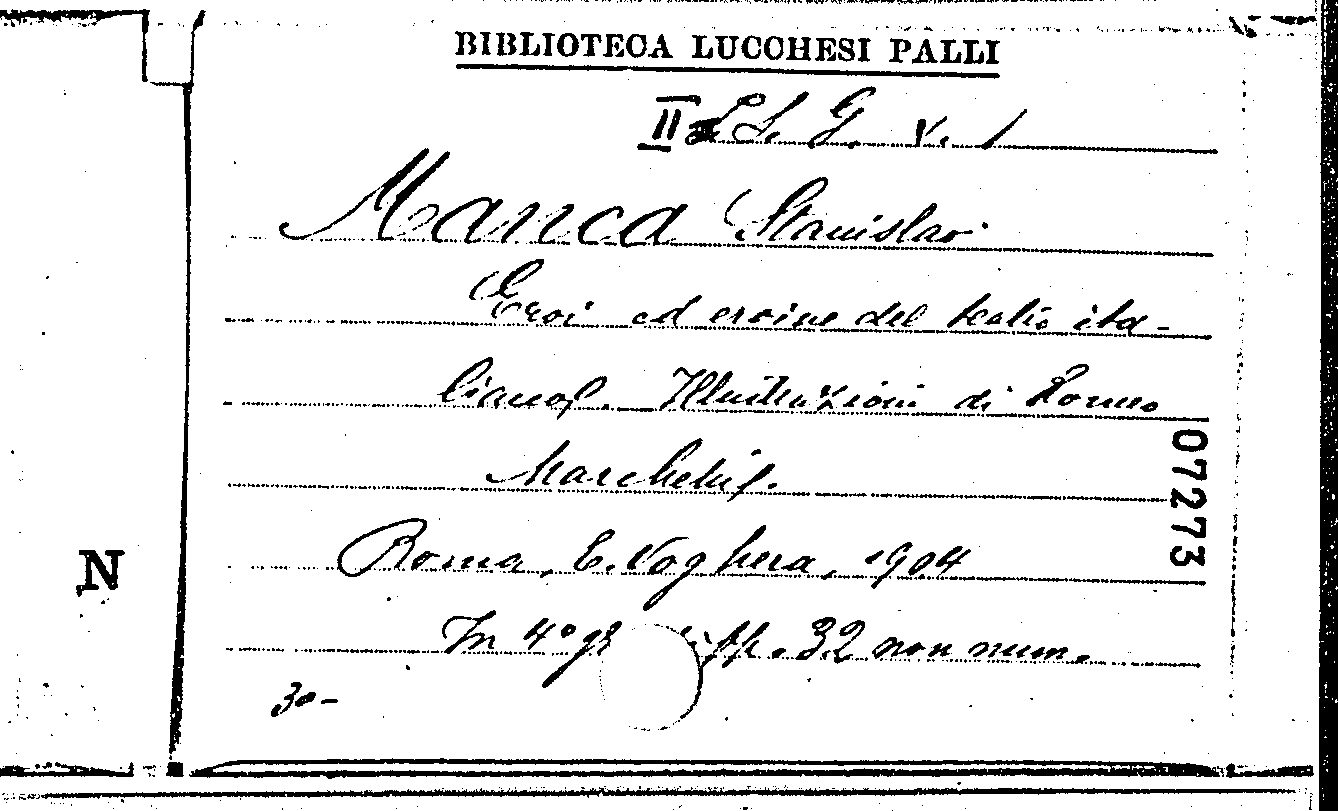 BIBLIOTECA LUCCHESI PALLI
II L. G. V. 1
Manca Stanislao
Eroi ed eroine del teatro ita-
liano. Illustrazioni di Romeo
Marchetti.
Roma, E. Voghera, 1904
In 4° gr di pp. 32 non num.
30-
07273
N